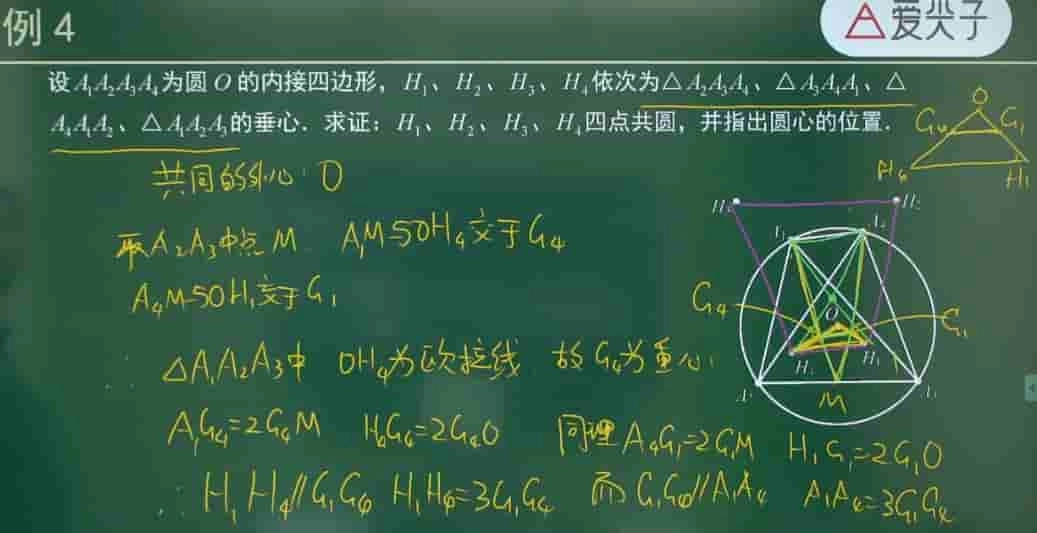 例 4
爱尖子
设 A₁A₂A₃A₄ 为圆 O 的内接四边形，H₁、H₂、H₃、H₄ 依次为△A₂A₃A₄、△A₃A₄A₁、△
A₄A₁A₂、△A₁A₂A₃的垂心．求证：H₁、H₂、H₃、H₄四点共圆，并指出圆心的位置．
O
G₄ G₁
H₄ H₁
共同的外心：O
取A₂A₃中点M A₁M与OH₄交于G₄
A₄M与OH₁交于G₁
∴ △A₁A₂A₃中 OH₄为欧拉线 故G₄为重心
A₁G₄=2G₄M H₄G₄=2G₄O 同理A₄G₁=2G₁M H₁G₁=2G₁O
∴ H₁H₄∥G₁G₄ H₁H₄=3G₁G₄ 而G₁G₄∥A₁A₄ A₁A₄=3G₁G₄
G₄ O G₁
H₁
M